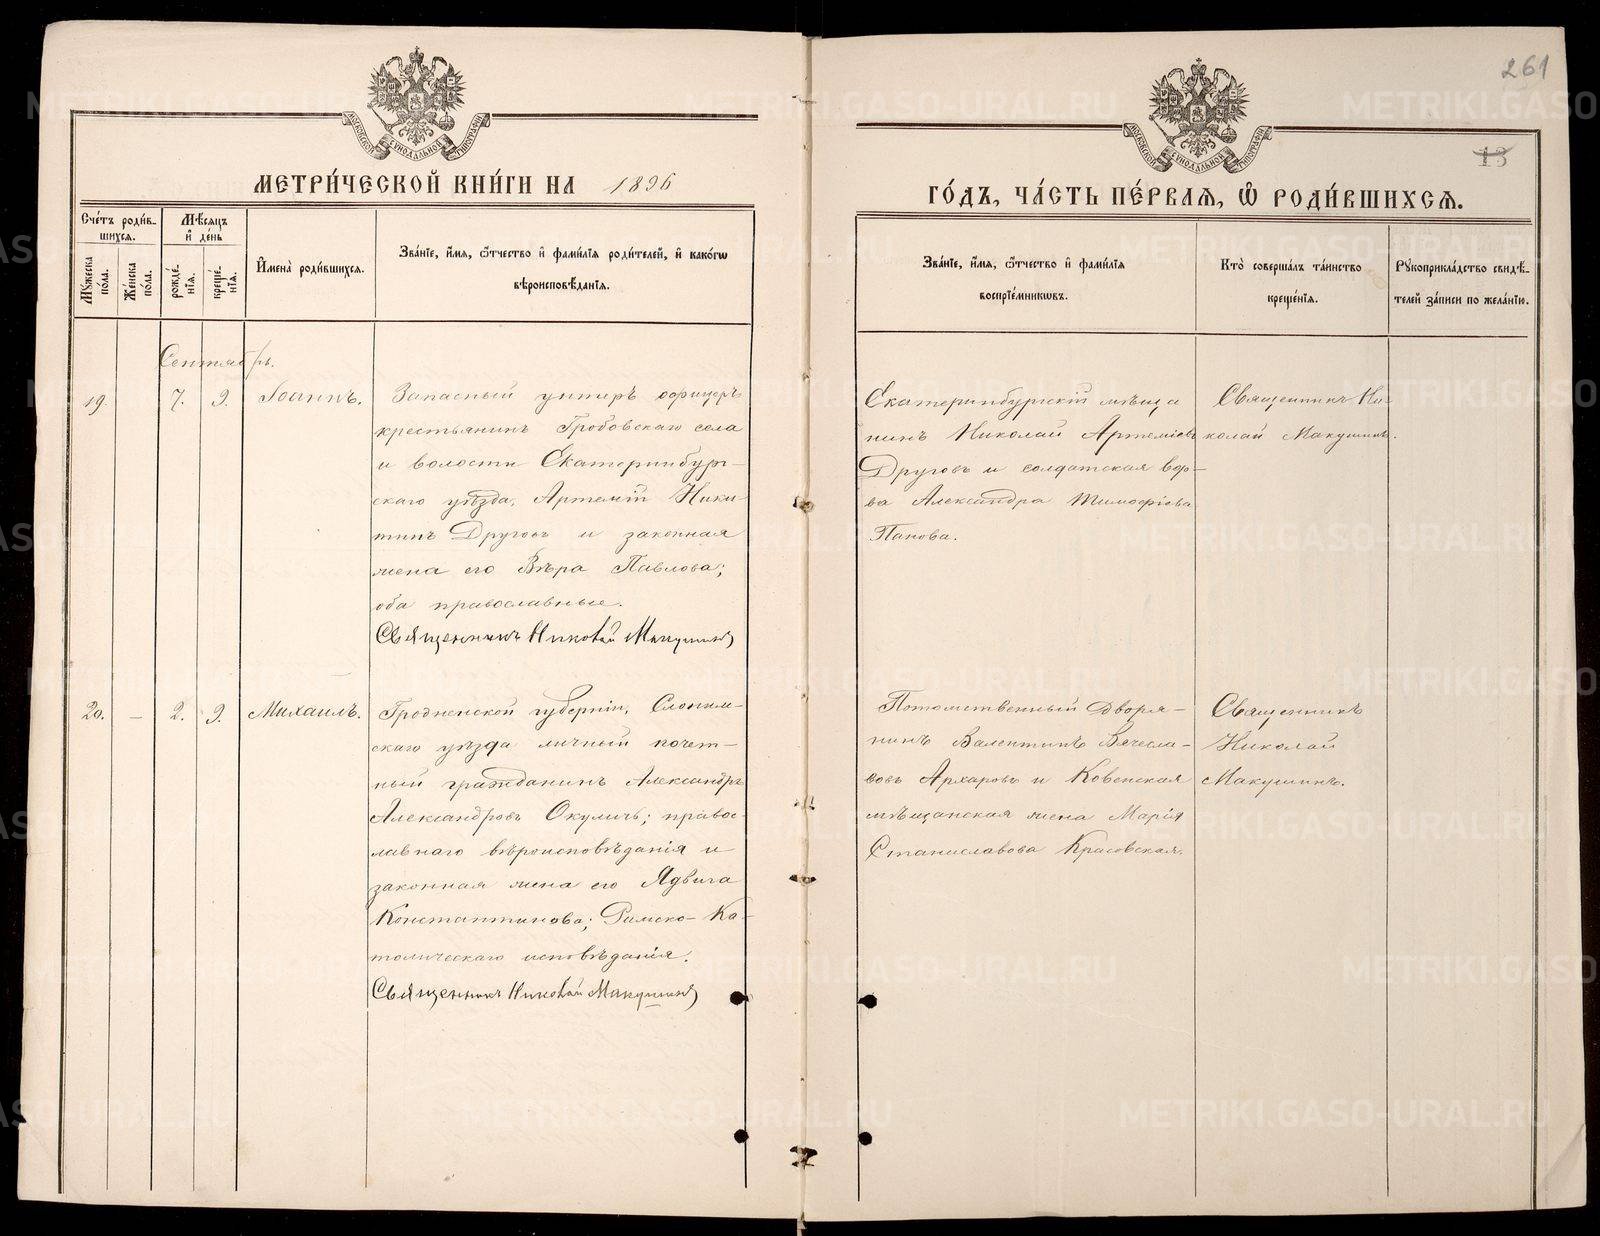 261
13
МОСКОВСКОЙ СѴНОДАЛЬНОЙ ТИПОГРАФІИ
МОСКОВСКОЙ СѴНОДАЛЬНОЙ ТИПОГРАФІИ
МЕТРИ́ЧЕСКОЙ КНИ́ГИ НА 1896
ГО́ДЪ, ЧА́СТЬ ПЕ́РВАѦ, Ѡ҆ РОДИ́ВШИХСѦ.
Сче́тъ роди́в-
шихсѧ.
Му́жеска
по́ла.
Же́нска
по́ла.
Мѣ́сѧцъ
и҆ де́нь
рожде́-
нїѧ.
креще́-
нїѧ.
И҆мена̀ роди́вшихсѧ.
Зва́нїе, и҆́мѧ, ѻ҆́тчество и҆ фами́лїѧ роди́телей, и҆ како́гѡ
вѣроисповѣ́данїѧ.
Зва́нїе, и҆́мѧ, ѻ҆́тчество и҆ фами́лїѧ
воспрїе́мникѡвъ.
Кто̀ соверша́лъ та́инство
креще́нїѧ.
Рꙋкоприкла́дство свидѣ́-
телей за́писи по жела́нїю.
Сентябрь.
19.
7.
9.
Іоаннъ.
Запасный унтеръ офицеръ
крестьянинъ Гробовскаго села
и волости Екатеринбург-
скаго уѣзда, Артемій Ники-
тинъ Друговъ и законная
жена его Вѣра Павлова;
оба православные.
Священникъ Николай Макушинъ
Екатеринбургскій мѣща
нинъ Николай Артеміевъ
Друговъ и солдатская вдо-
ва Александра Тимофіева
Панова.
Священникъ Ни-
колай Макушинъ.
20.
-
2.
9.
Михаилъ.
Гродненской губерніи, Слоним-
скаго уѣзда личный почет-
ный гражданинъ Александръ
Александровъ Окуличъ; правос-
лавнаго вѣроисповѣданія и
законная жена его Ядвига
Константинова; Римско-Ка-
толическаго исповѣданія.
Священникъ Николай Макушинъ
Потомственный дворя-
нинъ Валентинъ Вячесла-
вовъ Архаровъ и Ковенская
мѣщанская жена Марія
Станиславова Красовская.
Священникъ
Николай
Макушинъ.
METRIKI.GASO-URAL.RU